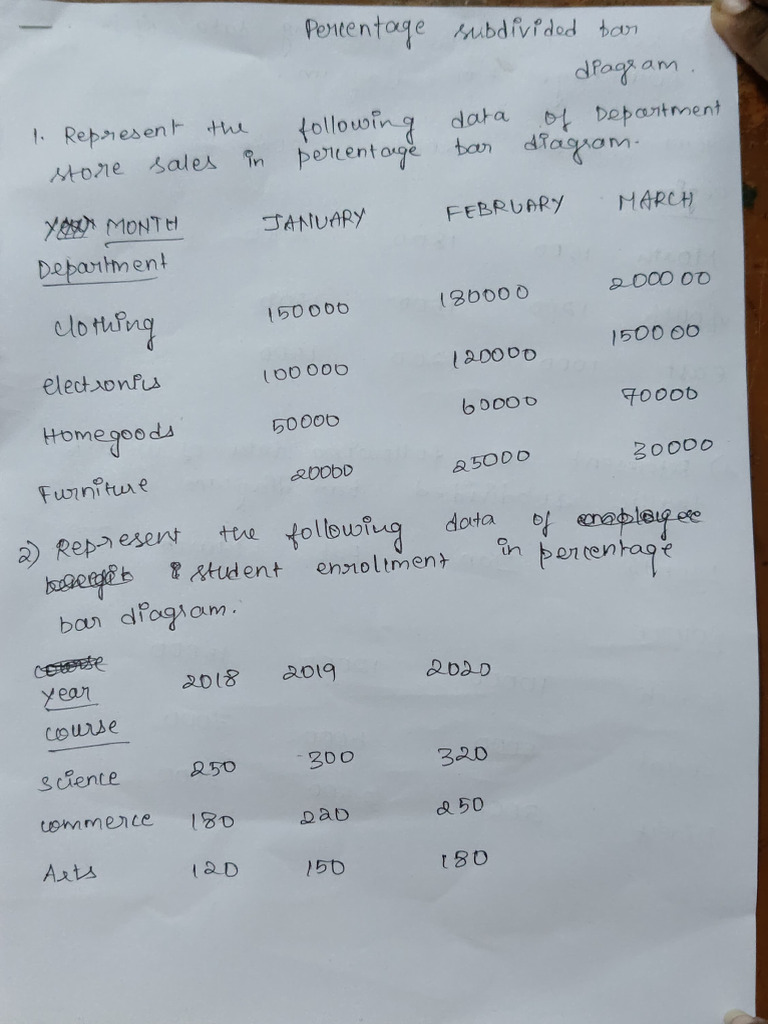 Percentage subdivided bar
diagram.
1. Represent the following data of Department
store sales in percentage bar diagram.
MONTH JANUARY FEBRUARY MARCH
Department
Clothing 150000 180000 200000
electronics 100000 120000 150000
Homegoods 50000 60000 70000
Furniture 20000 25000 30000
2) Represent the following data of
student enrollment in percentage
bar diagram.
year 2018 2019 2020
course
science 250 300 320
commerce 180 220 250
Arts 120 150 180